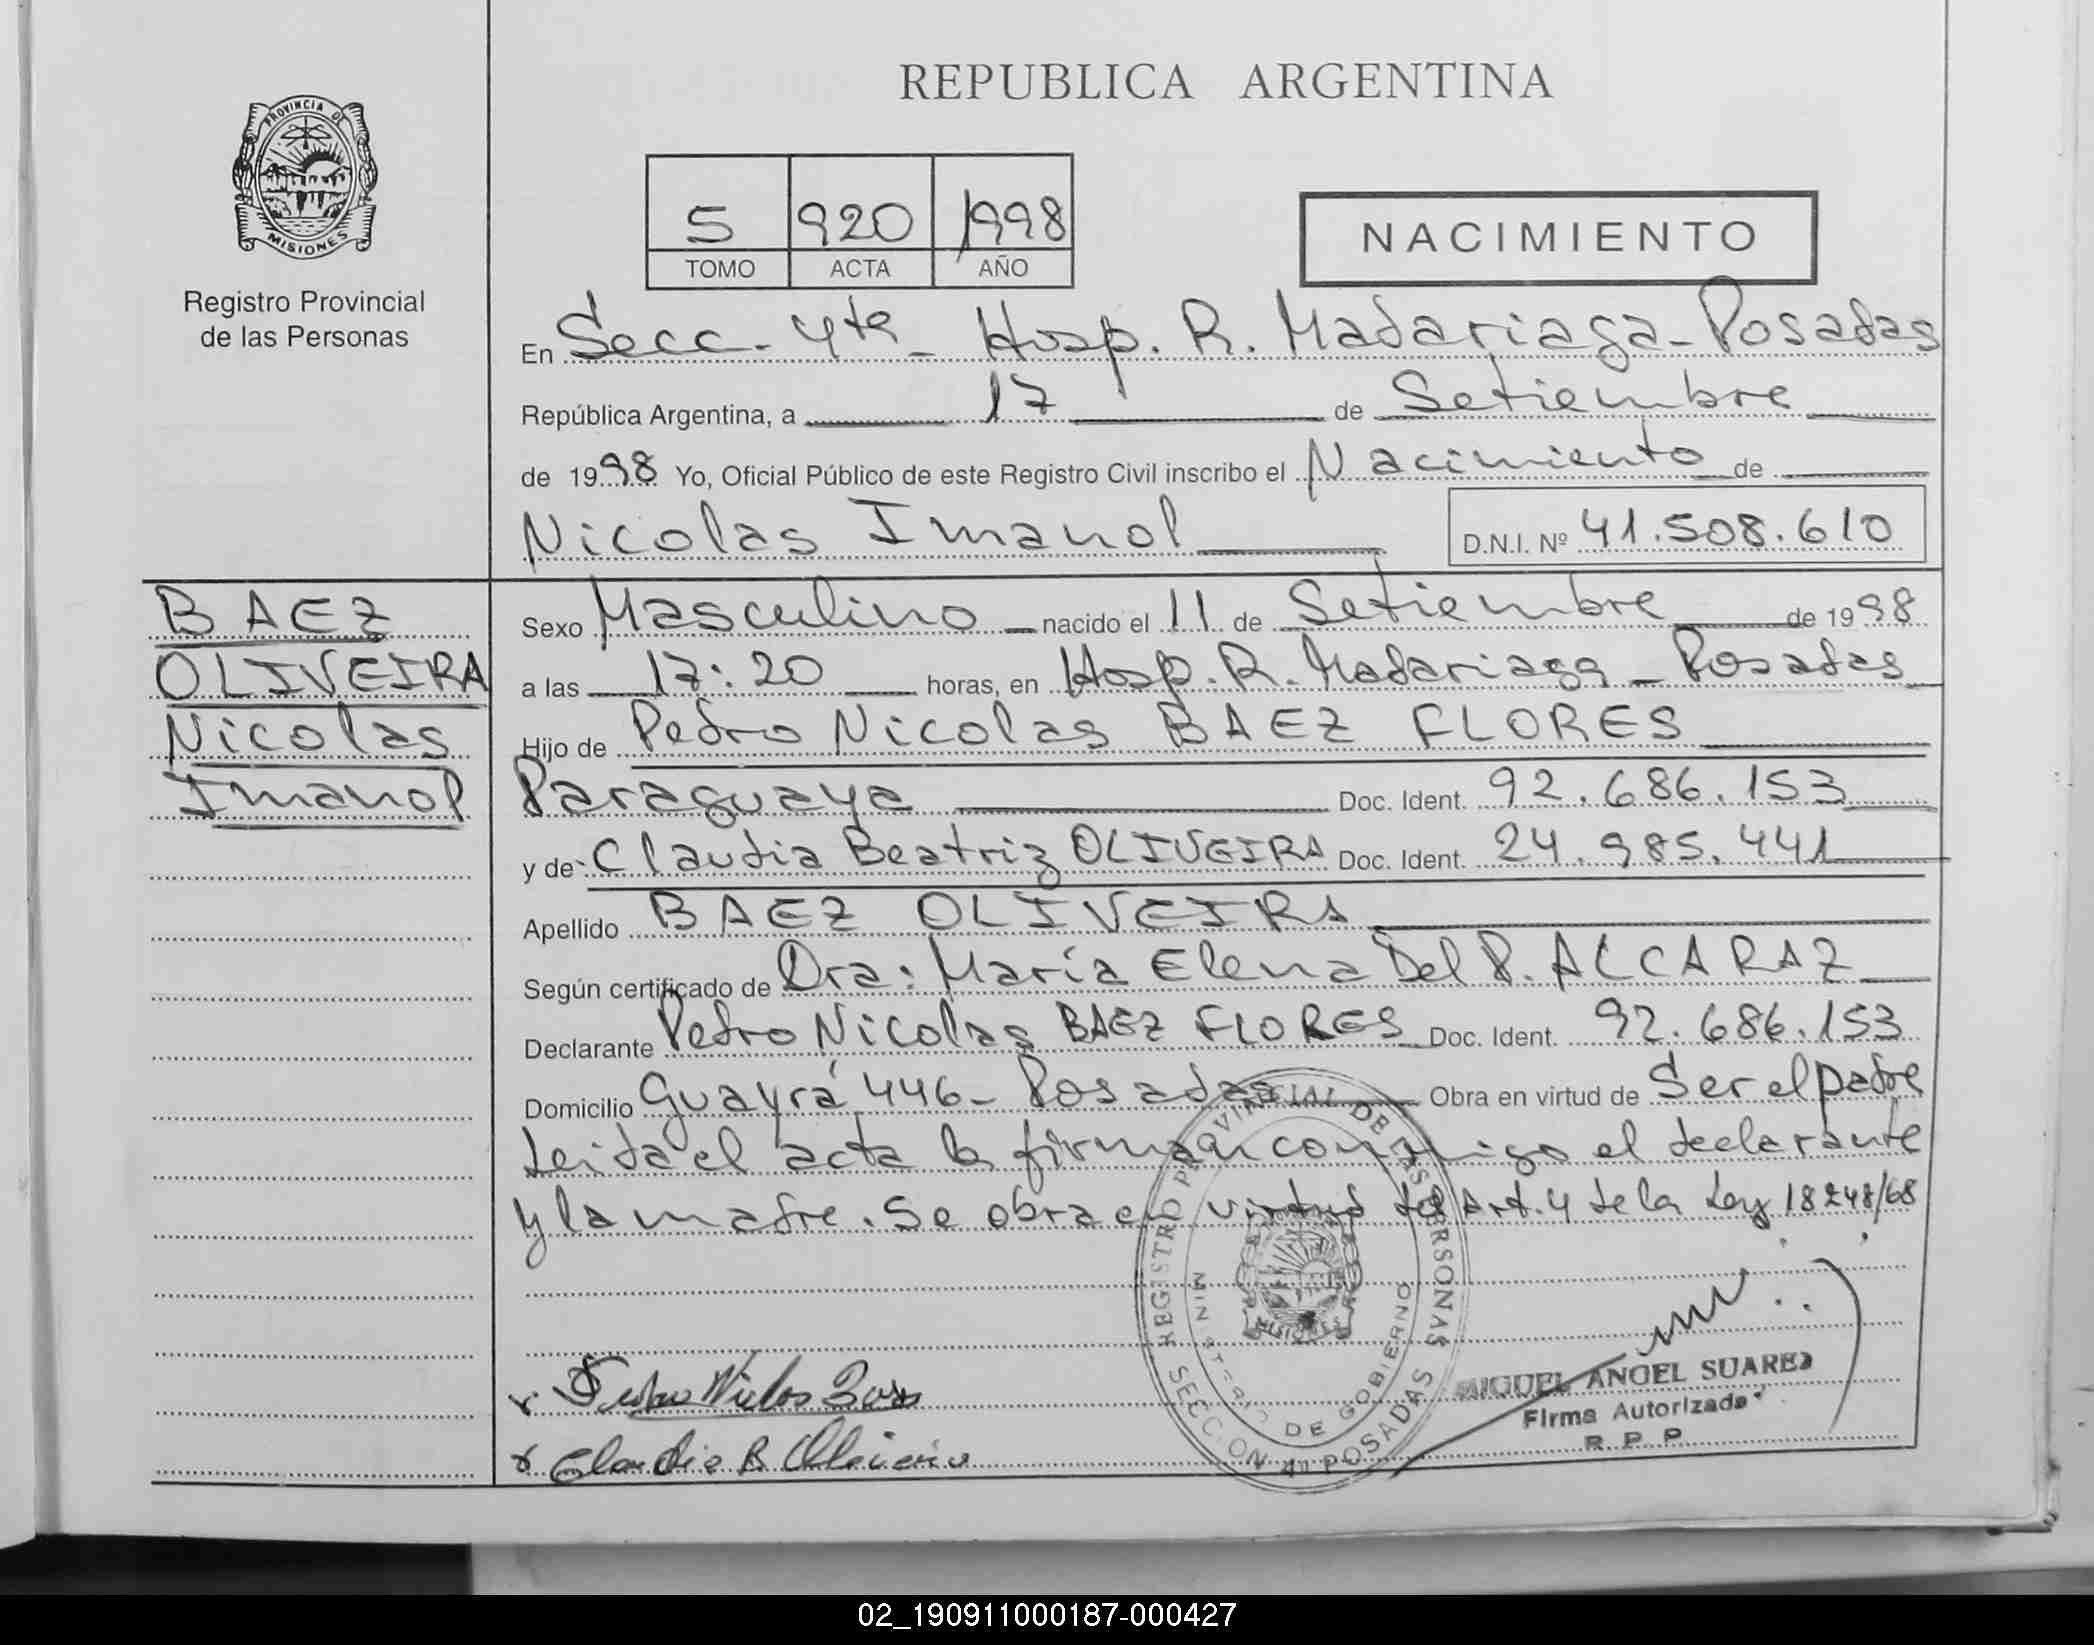 REPUBLICA ARGENTINA
PROVINCIA DE
MISIONES
Registro Provincial
de las Personas
5 920 1998
TOMO ACTA AÑO
NACIMIENTO
En Secc. 4ta - Hosp. R. Madariaga - Posadas
República Argentina, a 17 de Setiembre
de 1998 Yo, Oficial Público de este Registro Civil inscribo el Nacimiento de
Nicolas Imanol D.N.I. Nº 41.508.610
BAEZ
OLIVEIRA
Nicolas
Imanol
Sexo Masculino nacido el 11 de Setiembre de 1998
a las 17:20 horas, en Hosp. R. Madariaga - Posadas
Hijo de Pedro Nicolas BAEZ FLORES
Paraguaya Doc. Ident. 92.686.153
y de Claudia Beatriz OLIVEIRA Doc. Ident. 24.985.441
Apellido BAEZ OLIVEIRA
Según certificado de Dra: María Elena Del P. ALCARAZ
Declarante Pedro Nicolas BAEZ FLORES Doc. Ident. 92.686.153
Domicilio Guayrá 446 - Posadas Obra en virtud de Ser el padre
Leida el acta la firman conmigo el declarante
y la madre. Se obra en virtud del Art. 4 de la Ley 18248/68
REGISTRO PROVINCIAL DE LAS PERSONAS
MINISTERIO DE GOBIERNO
SECCION 4ta POSADAS
MISIONES
MIGUEL ANGEL SUAREZ
Firma Autorizada
R. P. P.
Claudia B Oliveira
02_190911000187-000427